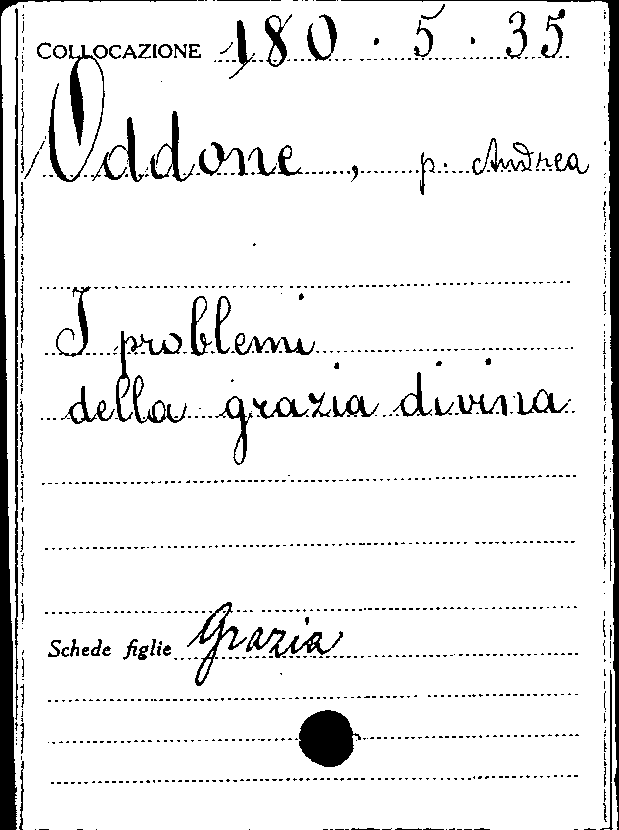 COLLOCAZIONE 180 . 5 . 35
Oddone, p. Andrea
I problemi
della grazia divina
Schede figlie Grazia